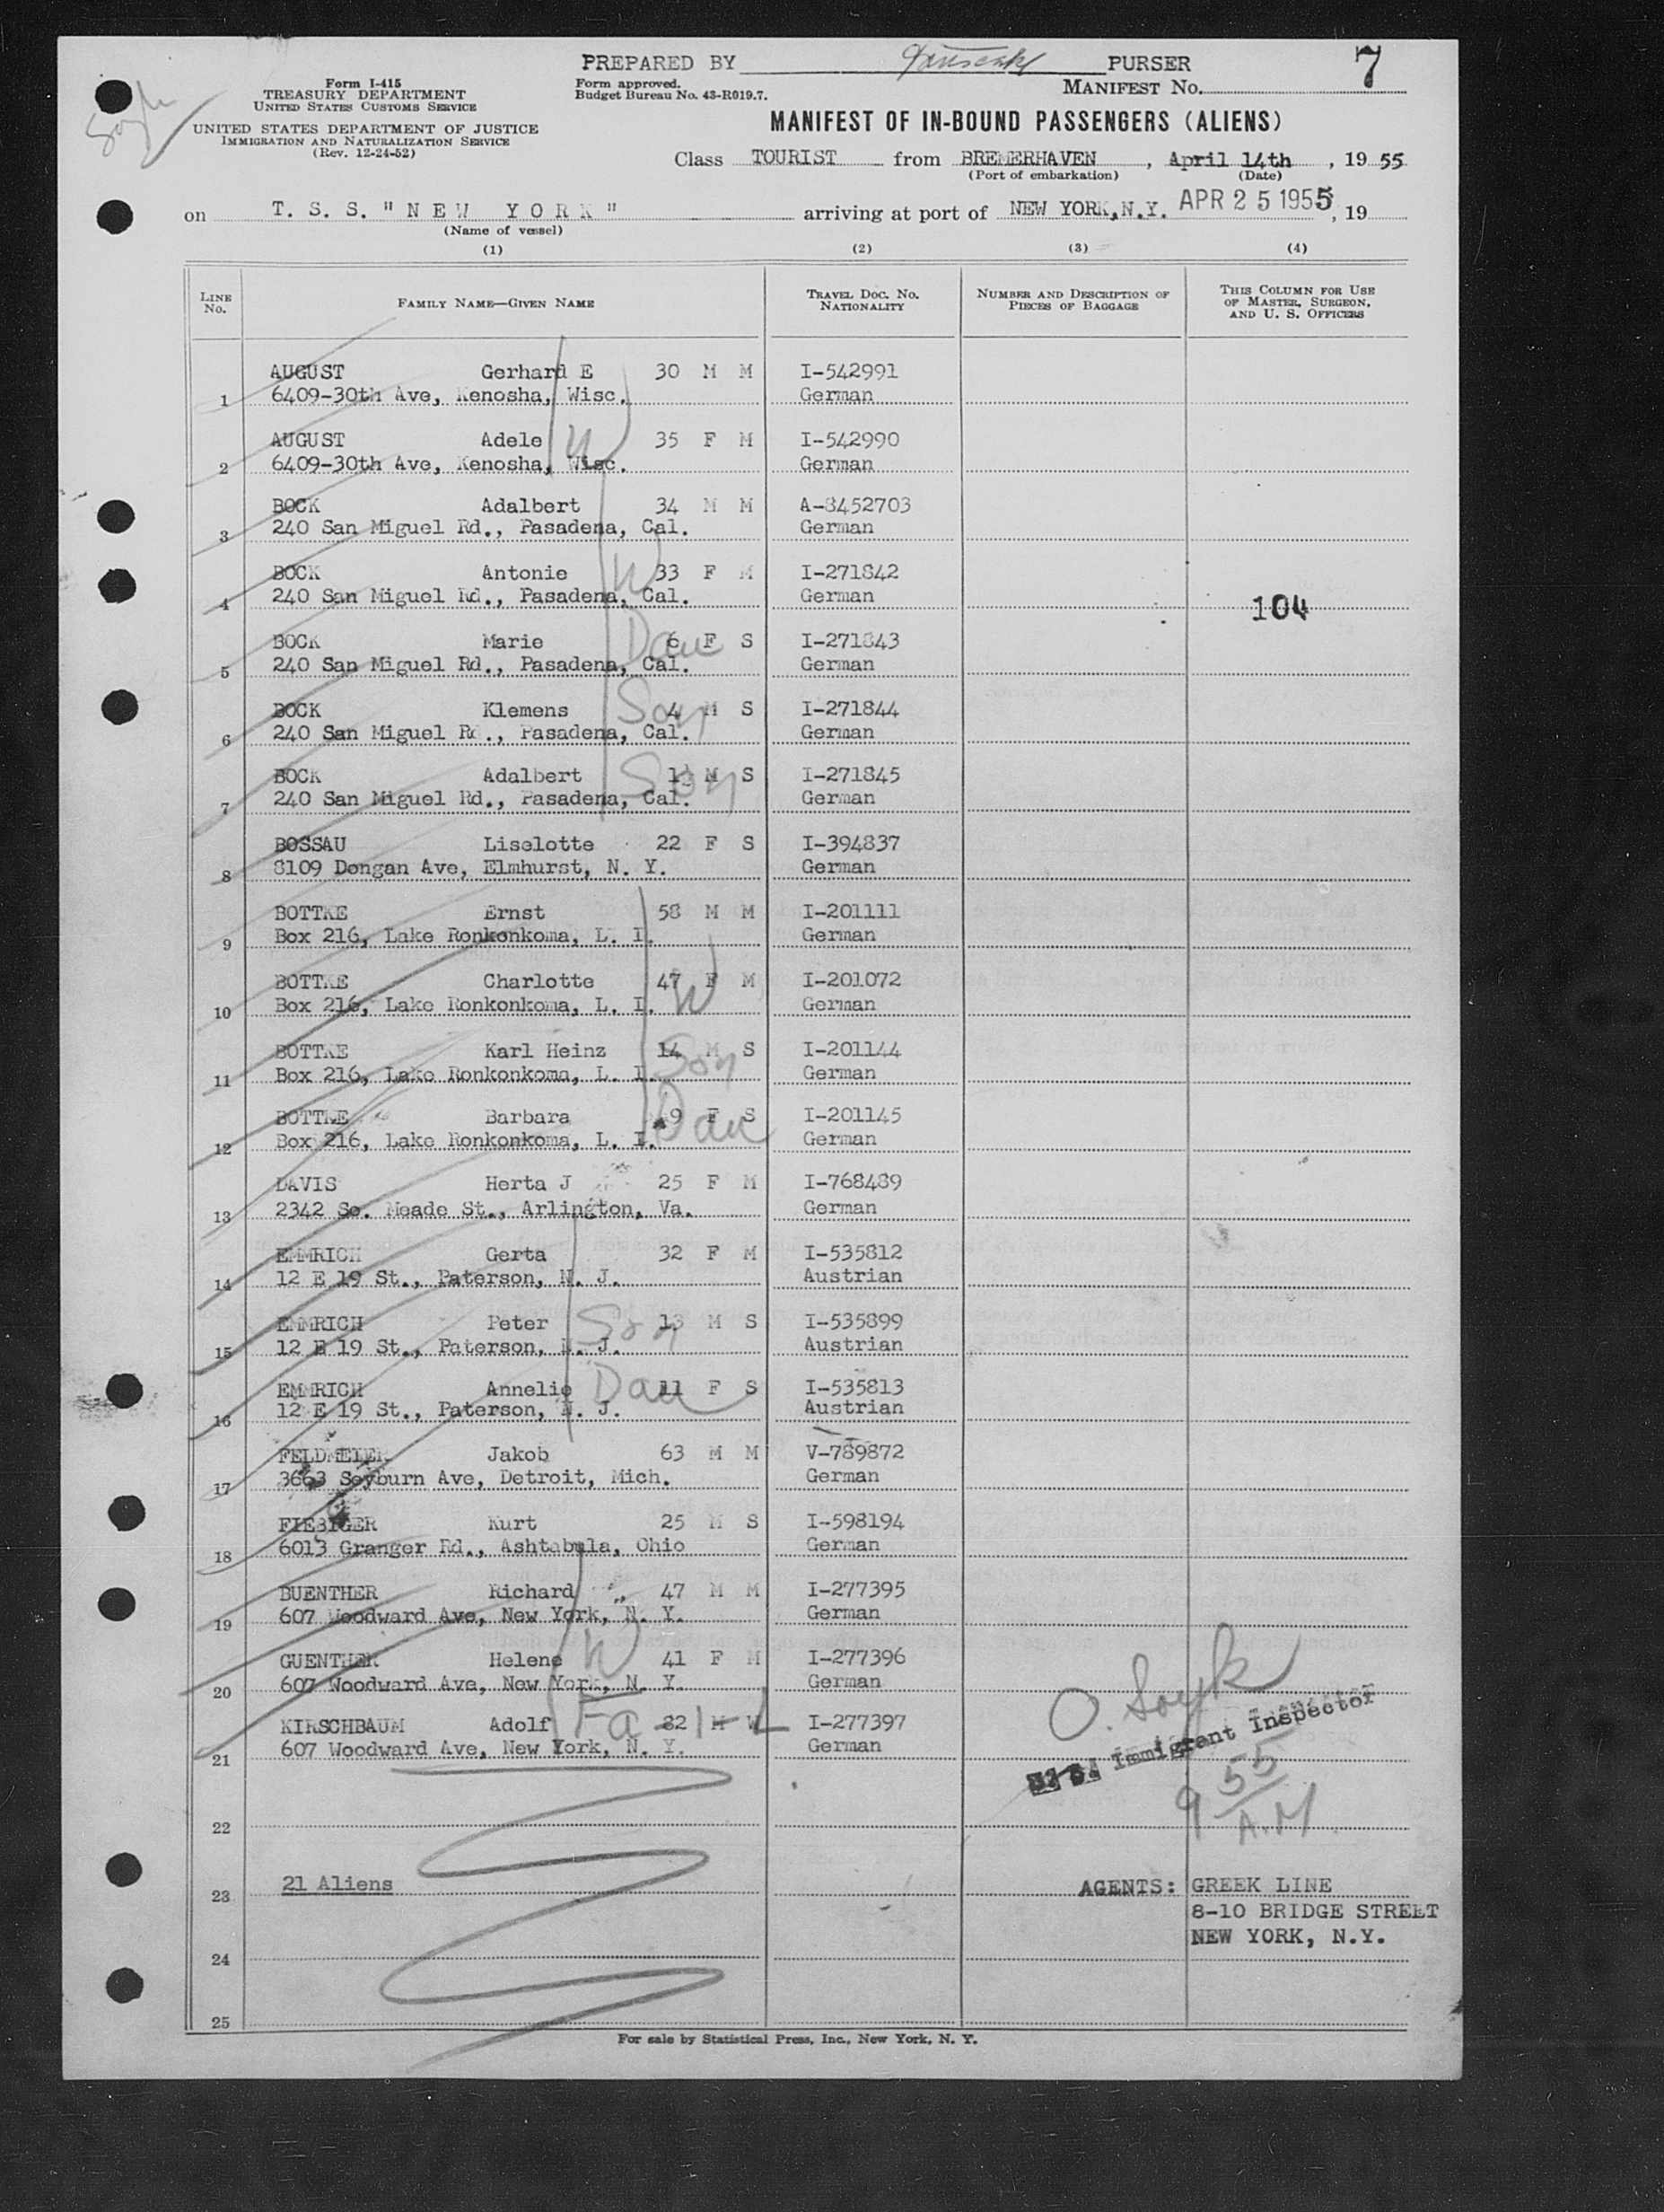 PREPARED BY PURSER 7
Form I-415
TREASURY DEPARTMENT
UNITED STATES CUSTOMS SERVICE
Form approved.
Budget Bureau No. 43-R019.7.
MANIFEST No.
UNITED STATES DEPARTMENT OF JUSTICE
IMMIGRATION AND NATURALIZATION SERVICE
(Rev. 12-24-52)
MANIFEST OF IN-BOUND PASSENGERS (ALIENS)
Class TOURIST from BREMERHAVEN, April 14th, 19 55
(Port of embarkation) (Date)
on T. S. S. "NEW YORK" arriving at port of NEW YORK, N.Y. APR 25 1955, 19
(Name of vessel)
(1) (2) (3) (4)
LINE No. FAMILY NAME—GIVEN NAME TRAVEL DOC. NO. NATIONALITY NUMBER AND DESCRIPTION OF PIECES OF BAGGAGE THIS COLUMN FOR USE OF MASTER, SURGEON, AND U. S. OFFICERS
AUGUST Gerhard E 30 M M I-542991
1 6409-30th Ave, Kenosha, Wisc. German
AUGUST Adele W 35 F M I-542990
2 6409-30th Ave, Kenosha, Wisc. German
BOCK Adalbert 34 M M A-8452703
3 240 San Miguel Rd., Pasadena, Cal. German
BOCK Antonie W 33 F M I-271842
4 240 San Miguel Rd., Pasadena, Cal. German 104
BOCK Marie Dau 6 F S I-271843
5 240 San Miguel Rd., Pasadena, Cal. German
BOCK Klemens Son 4 M S I-271844
6 240 San Miguel Rd., Pasadena, Cal. German
BOCK Adalbert Son M S I-271845
7 240 San Miguel Rd., Pasadena, Cal. German
BOSSAU Liselotte 22 F S I-394837
8 8109 Dongan Ave, Elmhurst, N. Y. German
BOTTKE Ernst 58 M M I-201111
9 Box 216, Lake Ronkonkoma, L. I. German
BOTTKE Charlotte 47 F M W I-201072
10 Box 216, Lake Ronkonkoma, L. I. German
BOTTKE Karl Heinz 14 M S Son I-201144
11 Box 216, Lake Ronkonkoma, L. I. German
BOTTKE Barbara 9 F S Dau I-201145
12 Box 216, Lake Ronkonkoma, L. I. German
DAVIS Herta J 25 F M I-768489
13 2342 So. Meade St., Arlington, Va. German
EMMRICH Gerta 32 F M I-535812
14 12 E 19 St., Paterson, N. J. Austrian
EMMRICH Peter Son 13 M S I-535899
15 12 E 19 St., Paterson, N. J. Austrian
EMMRICH Annelie Dau 11 F S I-535813
16 12 E 19 St., Paterson, N. J. Austrian
FELDMEIER Jakob 63 M M V-789872
17 3663 Seyburn Ave, Detroit, Mich. German
FIEBIGER Kurt 25 M S I-598194
18 6013 Granger Rd., Ashtabula, Ohio German
BUENTHER Richard 47 M M I-277395
19 607 Woodward Ave, New York, N. Y. German
GUENTHER Helene W 41 F M I-277396
20 607 Woodward Ave, New York, N. Y. German
KIRSCHBAUM Adolf Fa 82 M W I-277397
21 607 Woodward Ave, New York, N. Y. German
O. Soyk
Immigrant Inspector
9 55
A.M.
22
23 21 Aliens AGENTS: GREEK LINE
8-10 BRIDGE STREET
NEW YORK, N.Y.
24
25
For sale by Statistical Press, Inc., New York, N. Y.